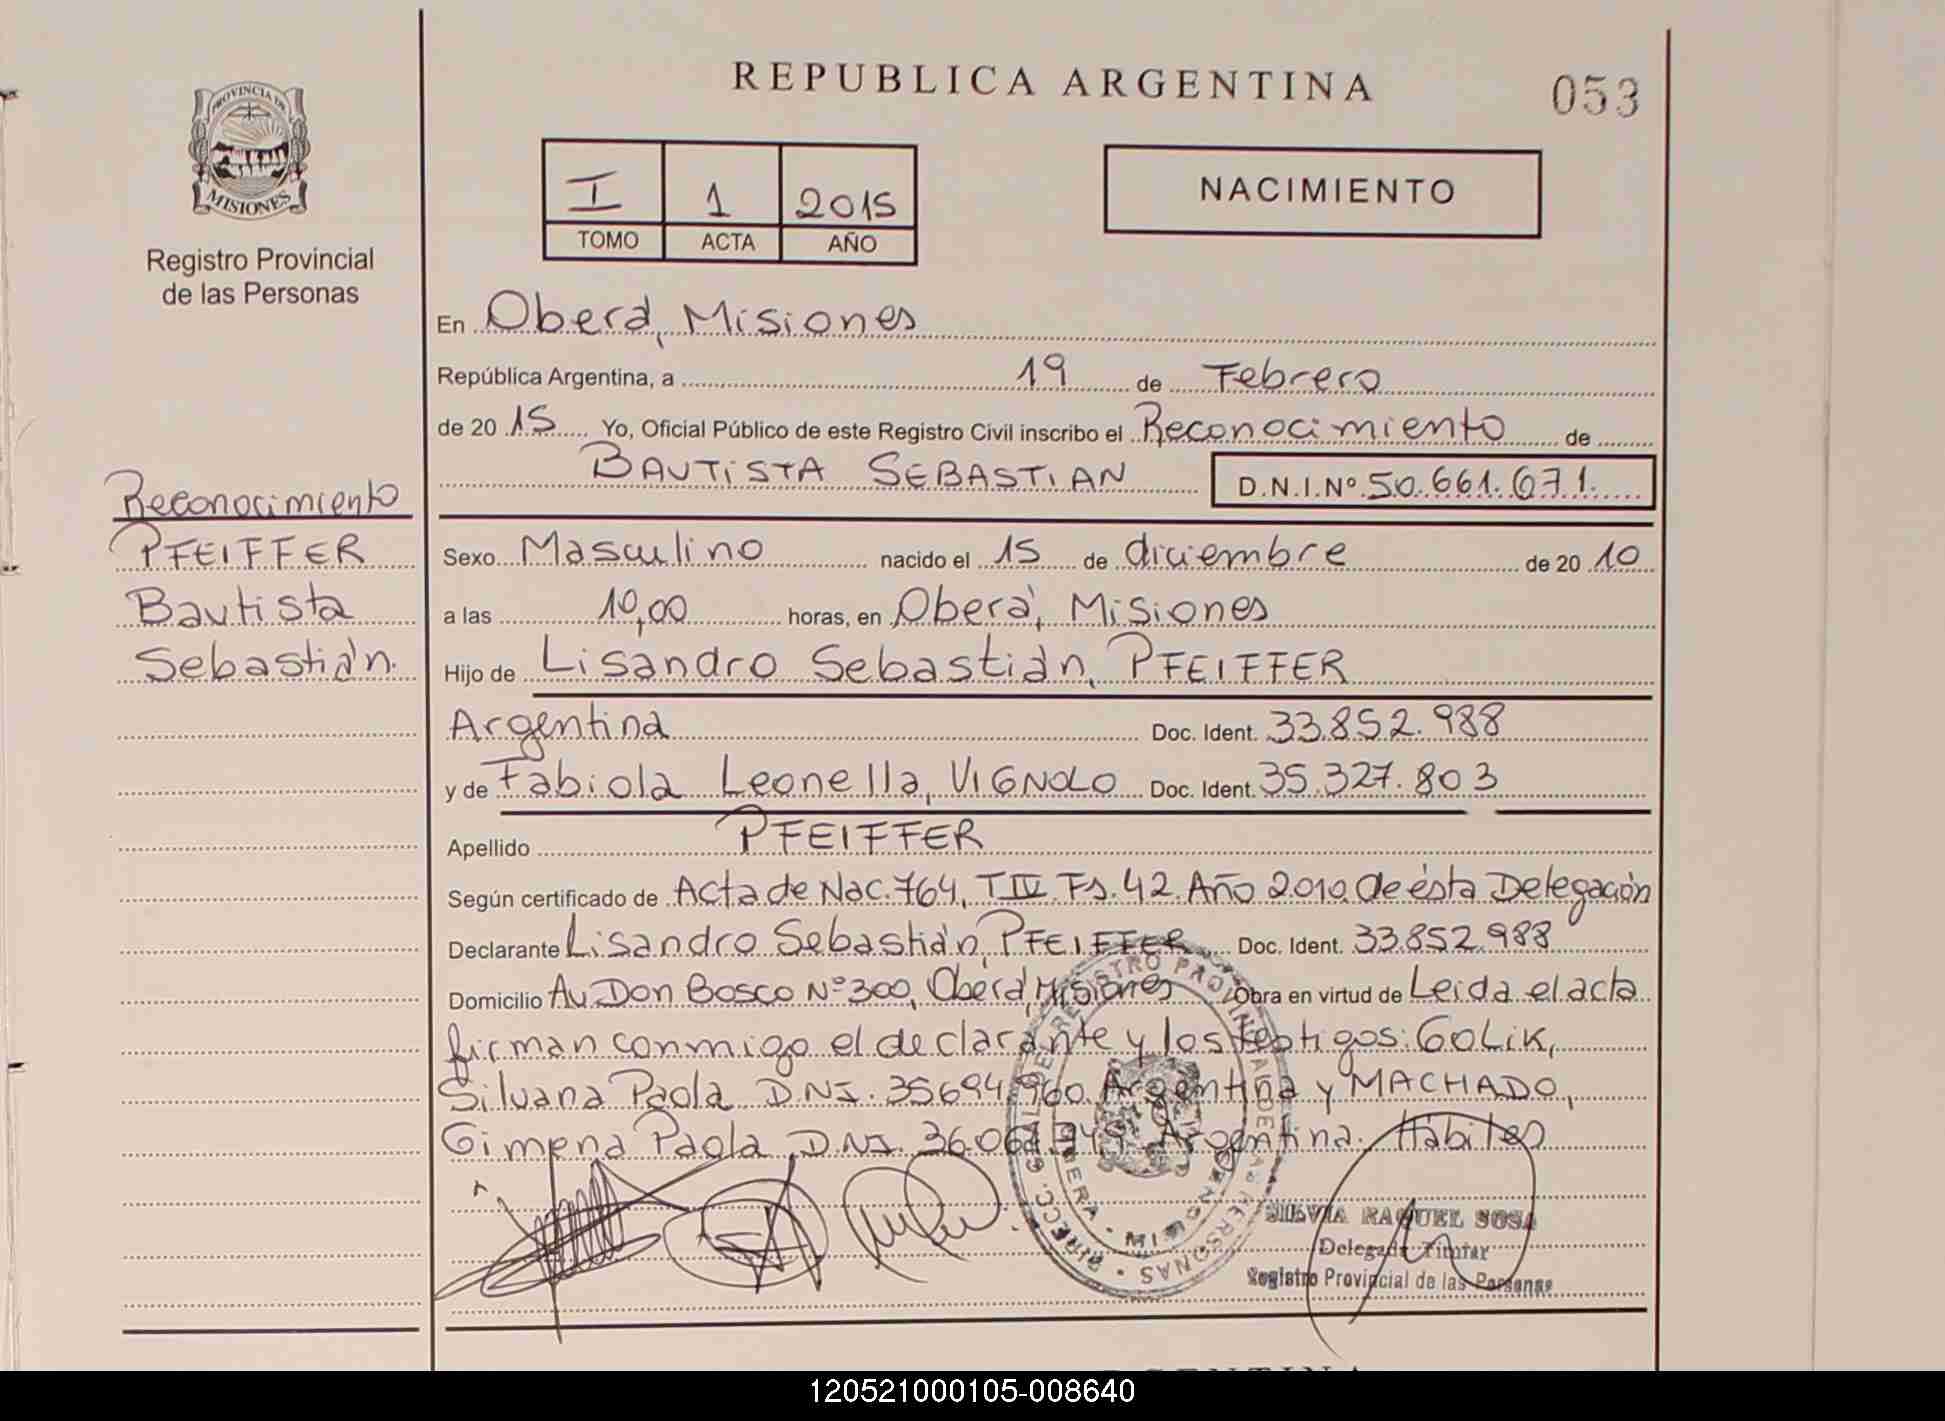 REPUBLICA ARGENTINA
053
PROVINCIA DE
MISIONES
Registro Provincial
de las Personas
I 1 2015
TOMO ACTA AÑO
NACIMIENTO
En Oberá, Misiones
República Argentina, a 19 de Febrero
de 20 15 Yo, Oficial Público de este Registro Civil inscribo el Reconocimiento de
BAUTISTA SEBASTIAN D.N.I.Nº 50.661.671
Reconocimiento
PFEIFFER
Bautista
Sebastián.
Sexo Masculino nacido el 15 de diciembre de 20 10
a las 10,00 horas, en Oberá, Misiones
Hijo de Lisandro Sebastián, PFEIFFER
Argentina Doc. Ident. 33.852.988
y de Fabiola Leonella, VIGNOLO Doc. Ident. 35.327.803
Apellido PFEIFFER
Según certificado de Acta de Nac. 764, T IV Fs. 42 Año 2010 de ésta Delegación
Declarante Lisandro Sebastián, PFEIFFER Doc. Ident. 33.852.988
Domicilio Av. Don Bosco Nº 300, Oberá, Misiones Obra en virtud de Leida el acta
firman conmigo el declarante y los testigos: GOLIK,
Silvana Paola D.N.I. 35694960 Argentina y MACHADO,
Gimena Paola D.N.I. Argentina. Hábiles
SILVIA RAQUEL SOSA
Delegada Titular
Registro Provincial de las Personas
120521000105-008640